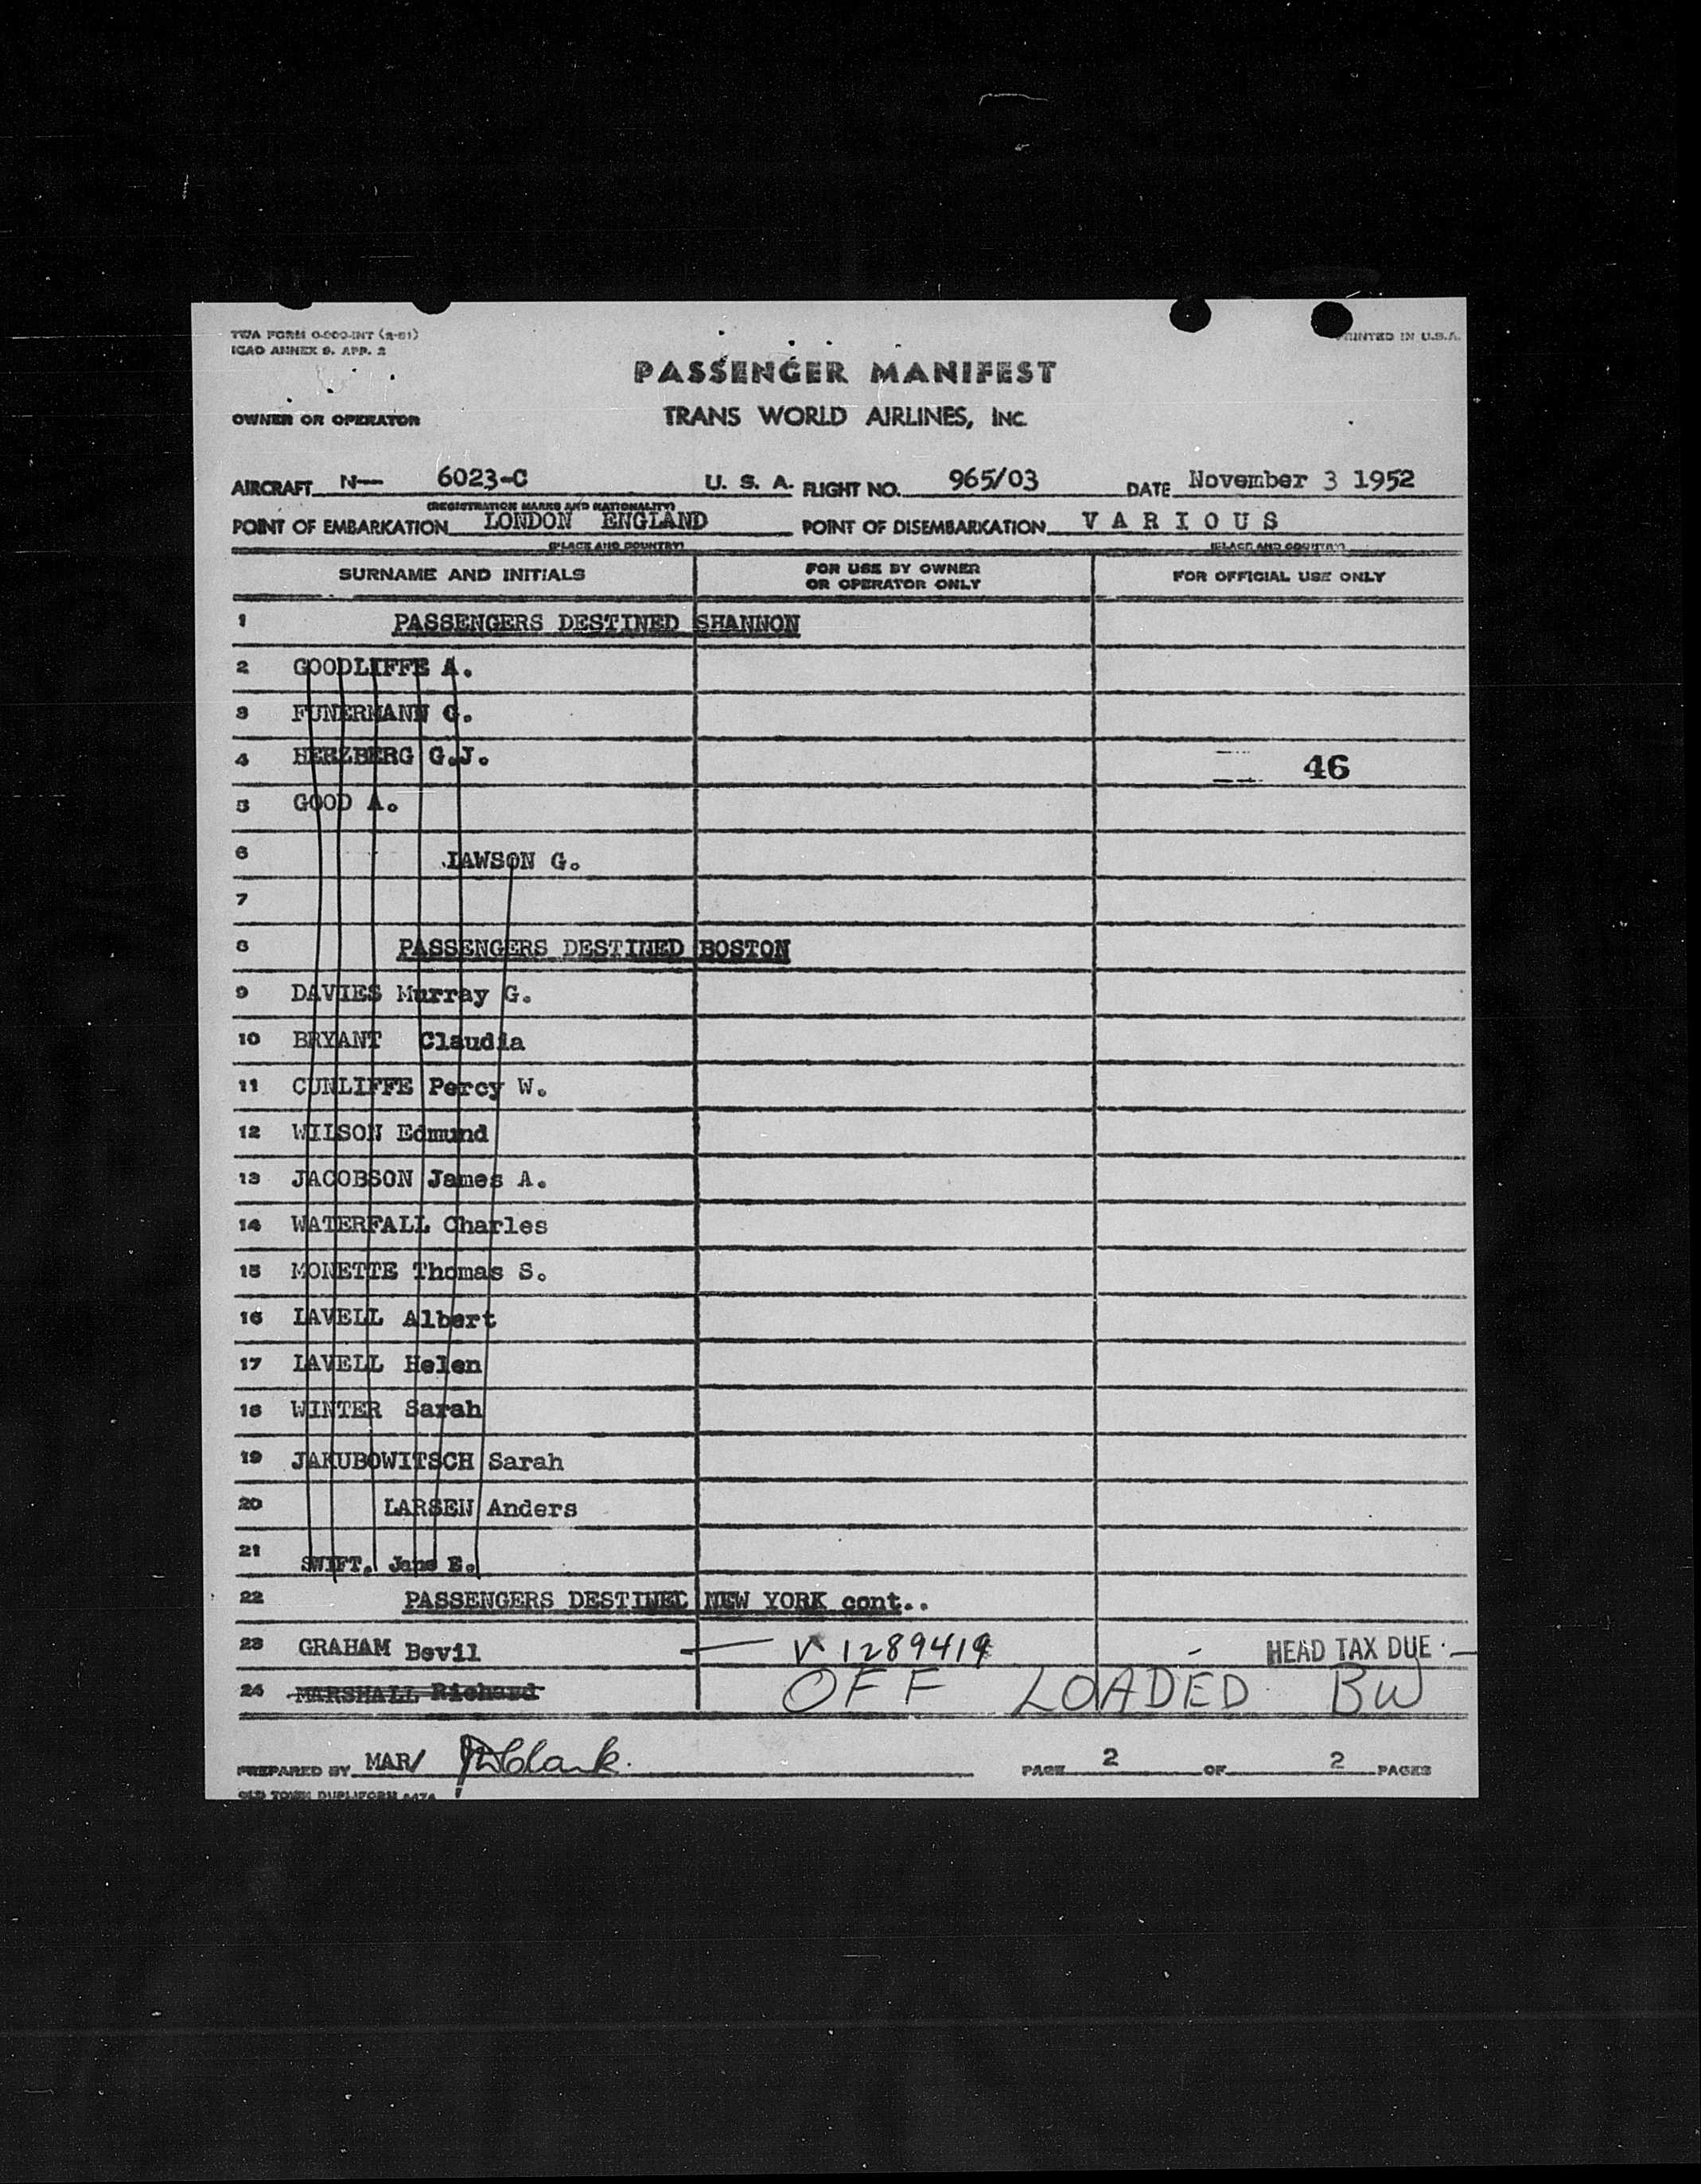 TWA FORM 0-900-INT (2-51)
ICAO ANNEX 9. APP. 2
PRINTED IN U.S.A.
PASSENGER MANIFEST
OWNER OR OPERATOR TRANS WORLD AIRLINES, INC.
AIRCRAFT N— 6023-C U. S. A. FLIGHT NO. 965/03 DATE November 3 1952
(REGISTRATION MARKS AND NATIONALITY)
POINT OF EMBARKATION LONDON ENGLAND POINT OF DISEMBARKATION V A R I O U S
(PLACE AND COUNTRY) (PLACE AND COUNTRY)
SURNAME AND INITIALS FOR USE BY OWNER OR OPERATOR ONLY FOR OFFICIAL USE ONLY
1 PASSENGERS DESTINED SHANNON
2 GOODLIFFE A.
3 FUNERMANN G.
4 HERZBERG G.J. 46
5 GOOD A.
6 LAWSON G.
7
8 PASSENGERS DESTINED BOSTON
9 DAVIES Murray G.
10 BRYANT Claudia
11 CUNLIFFE Percy W.
12 WILSON Edmund
13 JACOBSON James A.
14 WATERFALL Charles
15 MONETTE Thomas S.
16 LAVELL Albert
17 LAVELL Helen
18 WINTER Sarah
19 JAKUBOWITSCH Sarah
20 LARSEN Anders
21 SWIFT, Jane E.
22 PASSENGERS DESTINED NEW YORK cont..
23 GRAHAM Bevil — V 1289419 - HEAD TAX DUE -
24 MARSHALL Richard OFF LOADED BW
PREPARED BY MAR/ Clark. PAGE 2 OF 2 PAGES
OLD TOWN DUPLIFORM